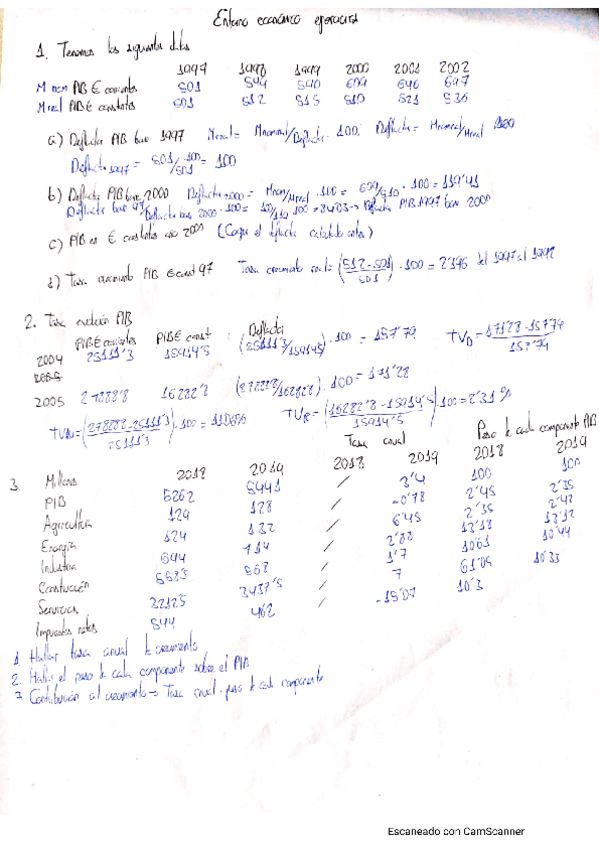 Entorno económico ejercicios
1. Tenemos los siguientes datos
1997 1998 1999 2000 2001 2002
M nom PIB € corrientes 501 544 590 609 646 697
M real PIB € constantes 501 512 515 510 521 536
a) Deflactor PIB base 1997 Mreal = Mnominal/Deflactor · 100; Deflactor = Mnominal/Mreal · 100
Deflactor 1997 = 501/501 · 100 = 100
b) Deflactor PIB base 2000 Deflactor 2000 = Mnom/Mreal · 100 = 609/510 · 100 = 119'41
Deflactor base 97/Deflactor base 2000 · 100 = · 100 = → Deflactor PIB 1997 base 2000
c) PIB en € constantes base 2000 (Coger el deflactor calculado antes)
d) Tasa crecimiento PIB € const 97 Tasa crecimiento real = (512-501/501) · 100 = 2'196 del 1997 al 1998
2. Tasa evolución PIB
PIB € corrientes PIB € const Deflactor
2004 25111'3 15914'5 (25111'3/15914'5) · 100 = 157'79 TV0 = 171'28-157'79/157'79
2005
2005 27888'8 16282'8 (27888'8/16282'8) · 100 = 171'28
TVN = (27888'8-25111'3/25111'3) · 100 = TVR = (16282'8-15914'5/15914'5) · 100 = 2'31 %
Tasa anual Peso de cada componente PIB
3. Millones 2018 2019 2018 2019 2018 2019
PIB 5262 5441 / 3'4 100 100
Agricultura 129 128 / -0'78 2'45 2'35
Energía 124 132 / 6'45 2'35 2'42
Industria 694 714 / 2'88 13'18 13'12
Construcción 568 / 1'7 10'61 10'44
Servicios 3437'5 / 7 61'05
Impuestos netos 544 462 / -15'07 10'3 10'33
1. Hallar tasa anual de crecimiento
2. Hallar el peso de cada componente sobre el PIB
3. Contribución al crecimiento → Tasa anual · peso de cada componente
Escaneado con CamScanner